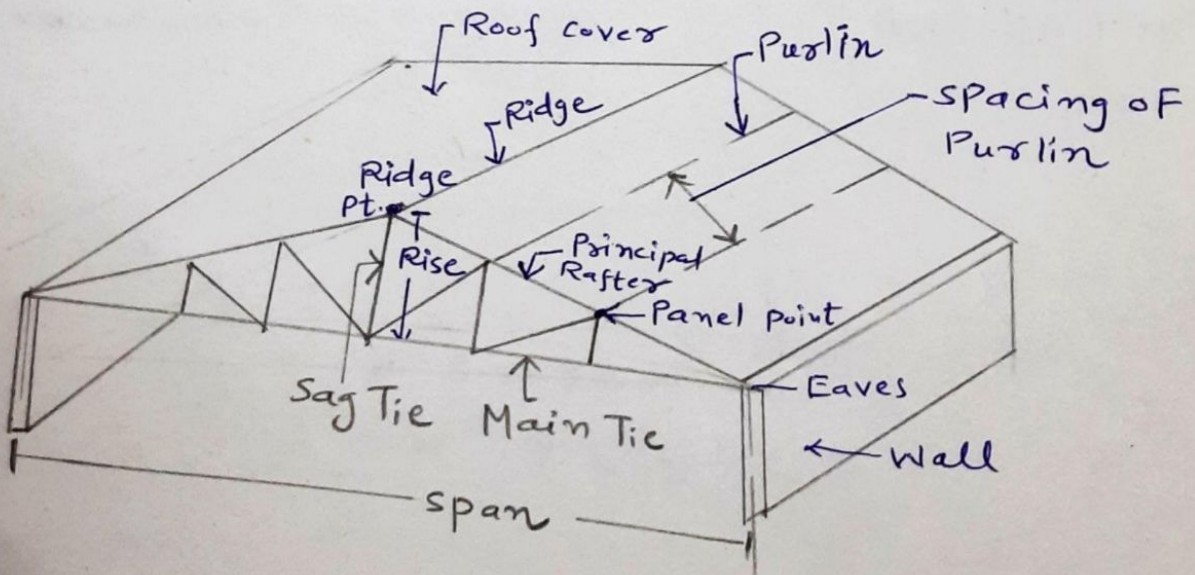 Roof cover
Purlin
Spacing of
Purlin
Ridge
Ridge
Pt.
Rise
Principal
Rafter
Panel point
Sag Tie
Main Tie
Eaves
Wall
Span